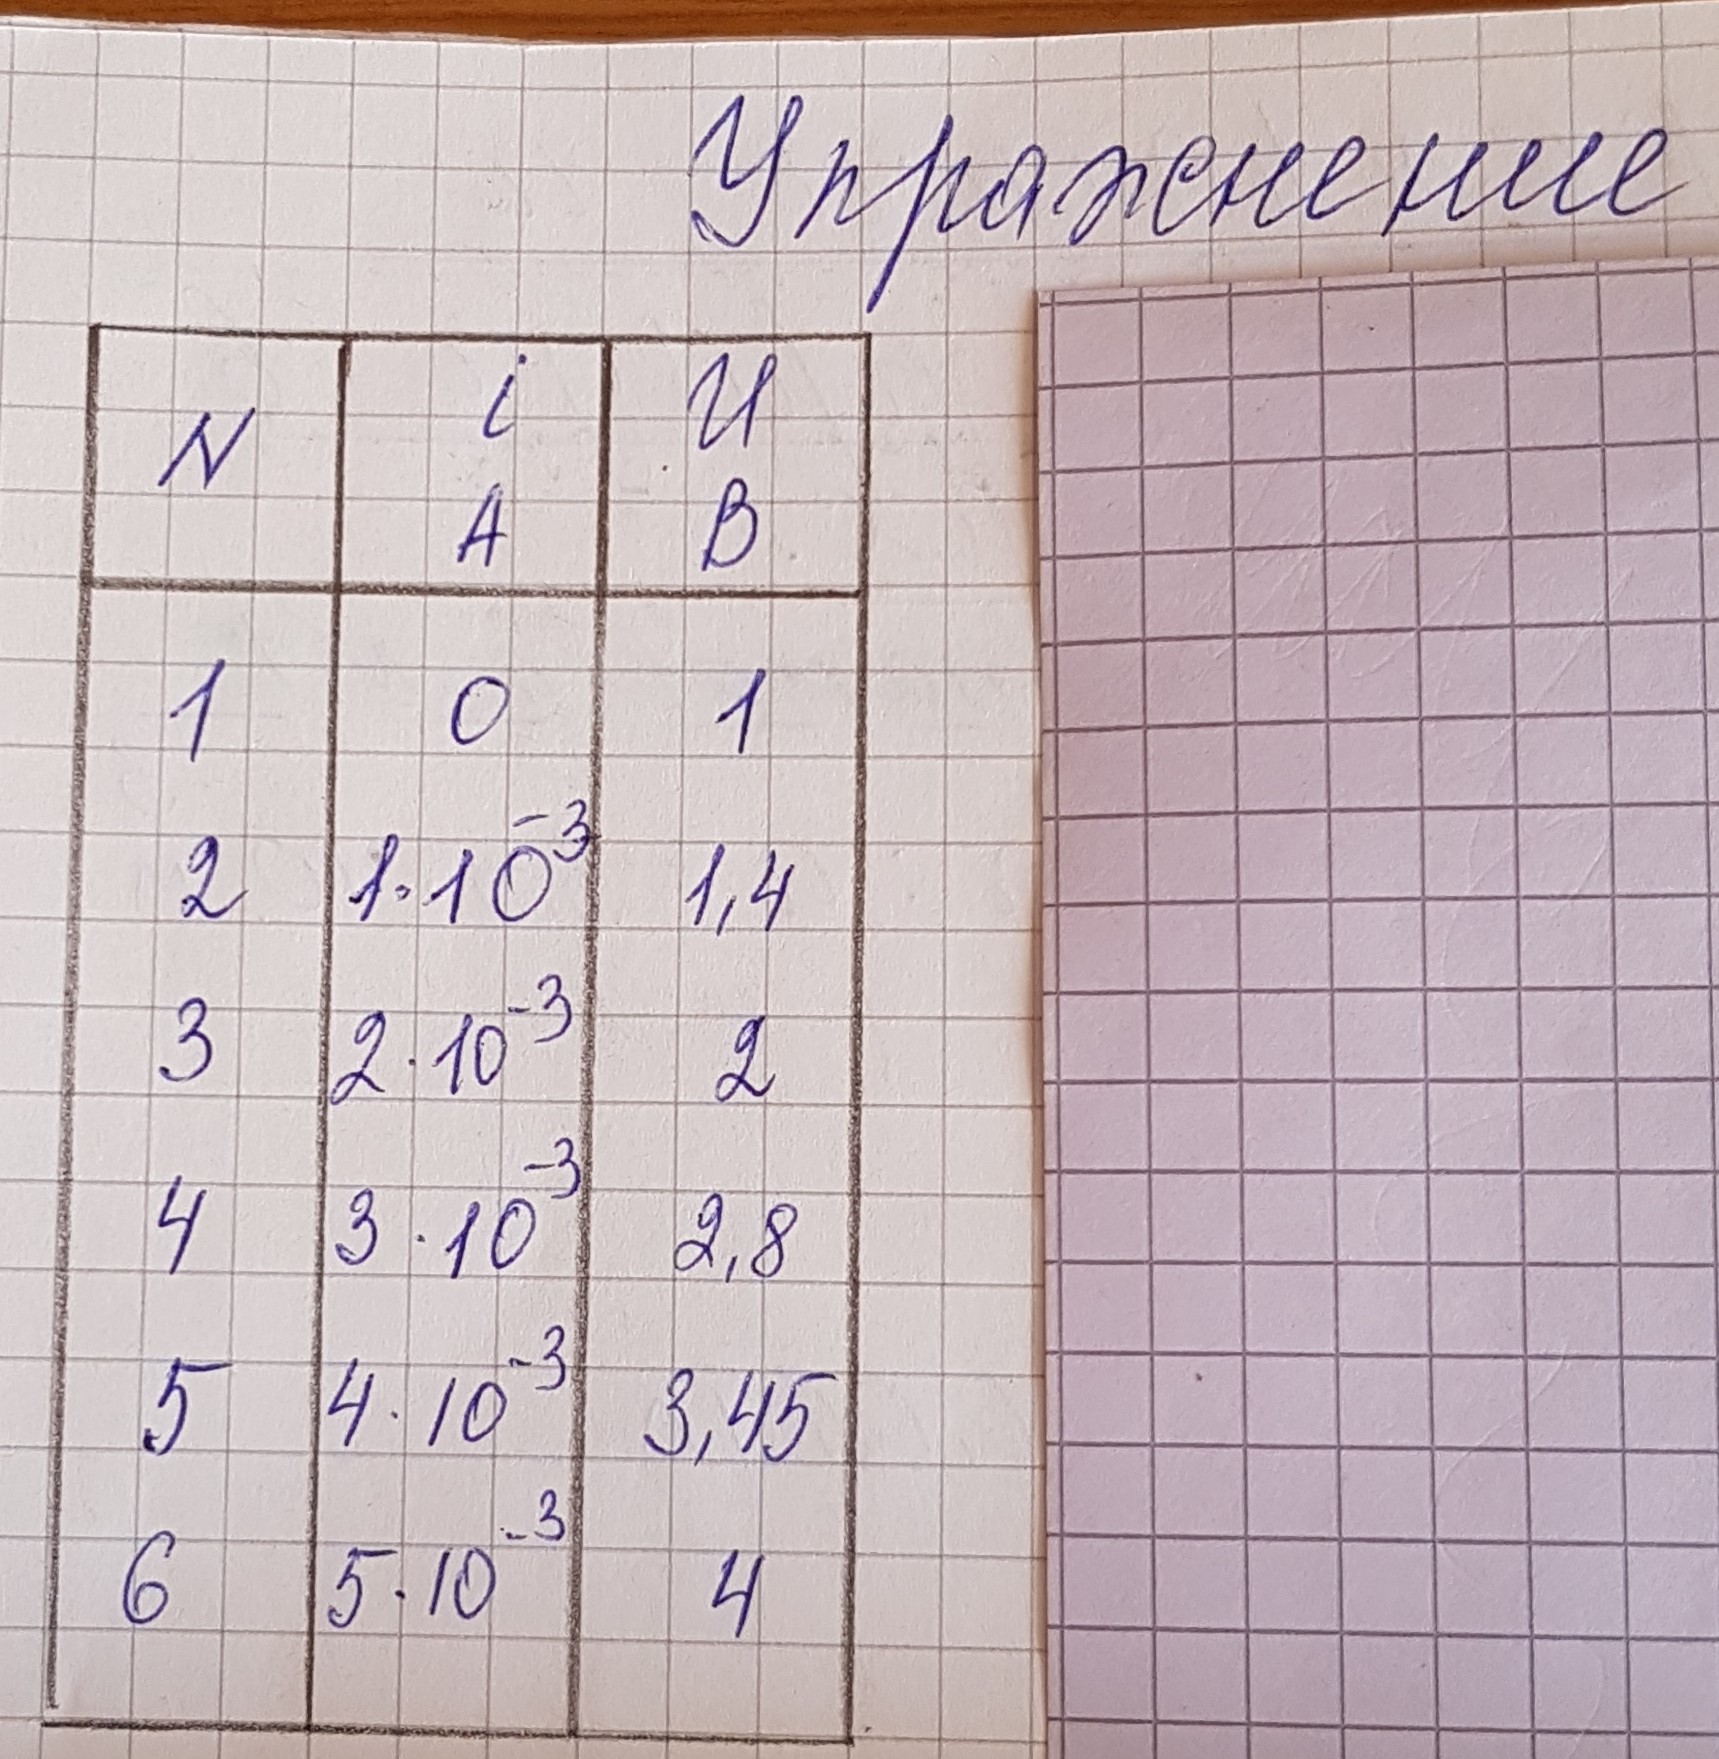 Упражнение
N i U
A B
1 0 1
2 1·10⁻³ 1,4
3 2·10⁻³ 2
4 3·10⁻³ 2,8
5 4·10⁻³ 3,45
6 5·10⁻³ 4